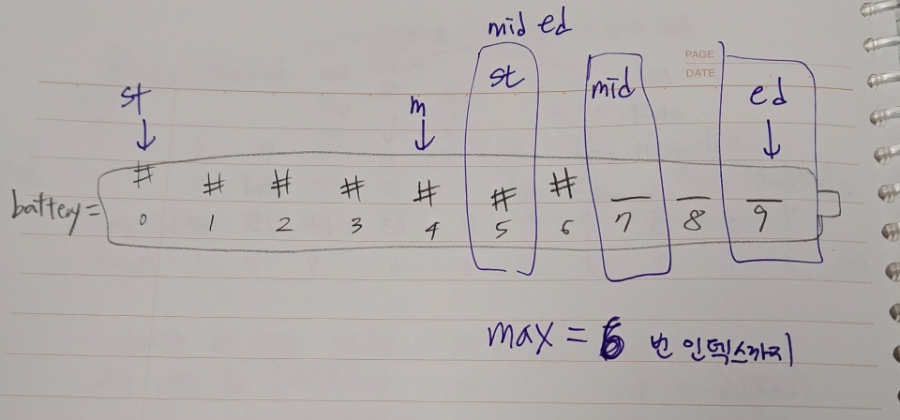 mid ed
PAGE
DATE
st
m
st
mid
ed
battery = # # # # # # # _ _ _
0 1 2 3 4 5 6 7 8 9
max = 6 번 인덱스까지